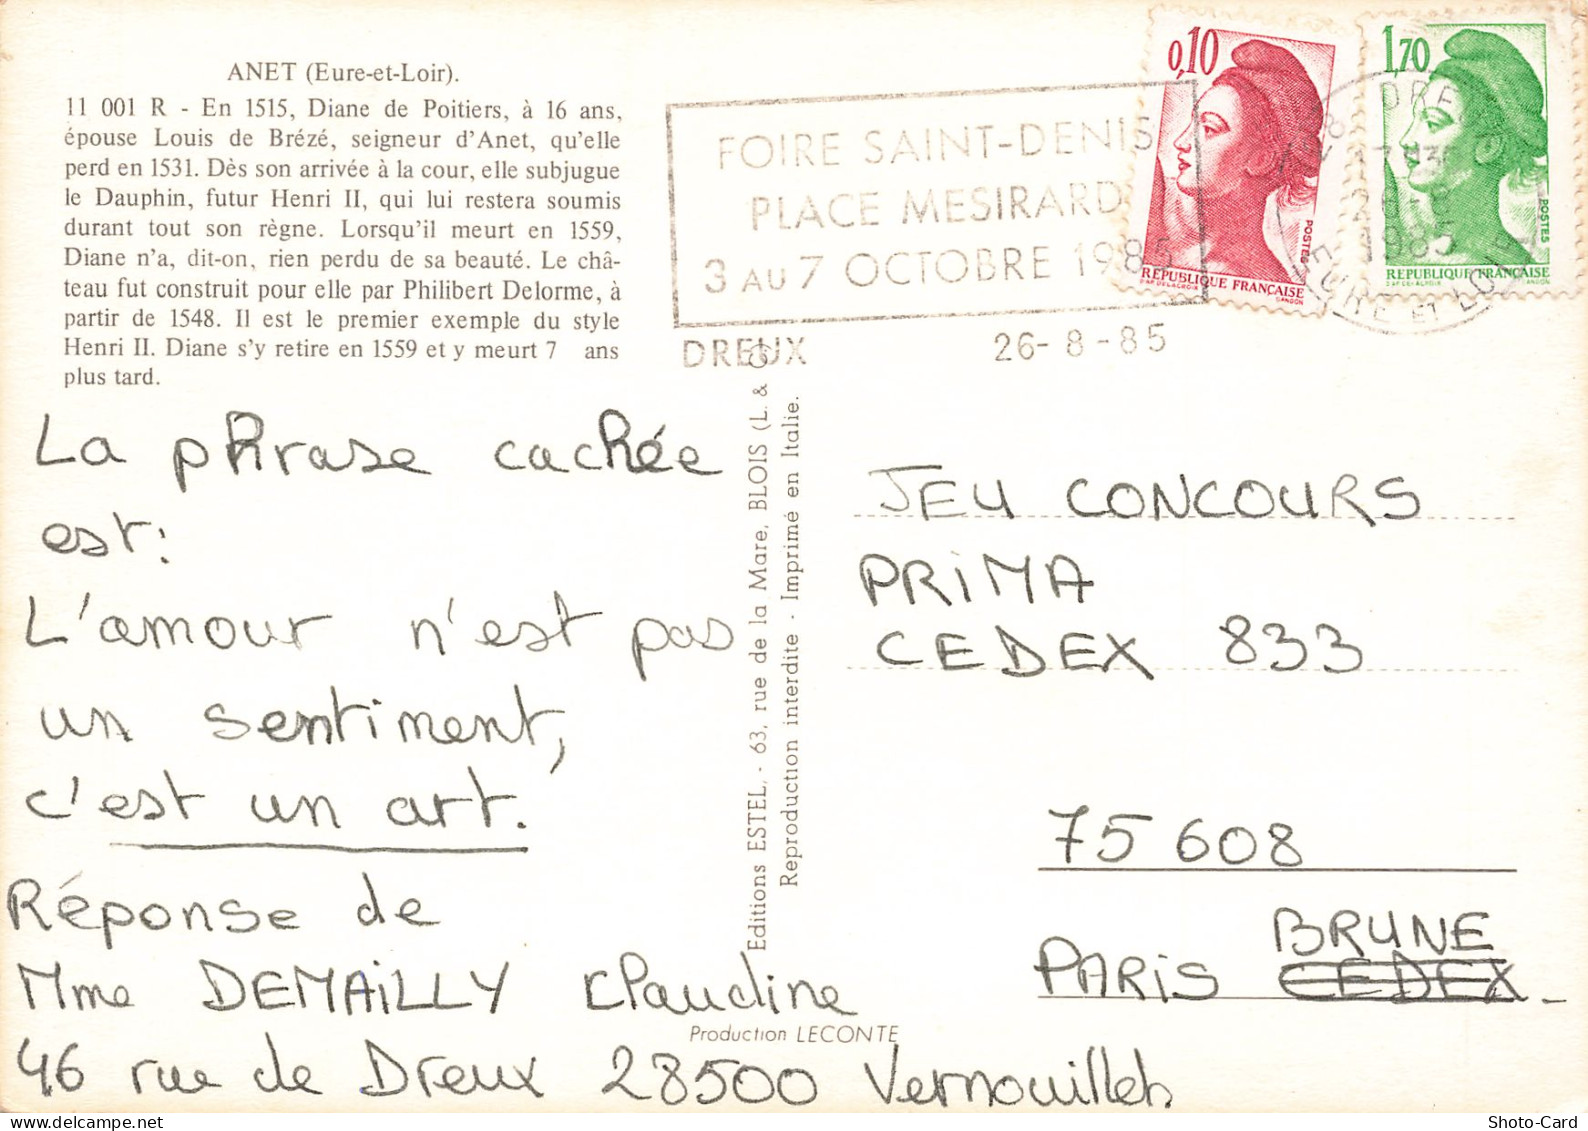 ANET (Eure-et-Loir).
11 001 R - En 1515, Diane de Poitiers, à 16 ans,
épouse Louis de Brézé, seigneur d'Anet, qu'elle
perd en 1531. Dès son arrivée à la cour, elle subjugue
le Dauphin, futur Henri II, qui lui restera soumis
durant tout son règne. Lorsqu'il meurt en 1559,
Diane n'a, dit-on, rien perdu de sa beauté. Le châ-
teau fut construit pour elle par Philibert Delorme, à
partir de 1548. Il est le premier exemple du style
Henri II. Diane s'y retire en 1559 et y meurt 7 ans
plus tard.
FOIRE SAINT-DENIS
PLACE MESIRARD
3 AU 7 OCTOBRE 1985
DREUX 26-8-85
0,10
POSTES
REPUBLIQUE FRANÇAISE
D'AP. DELACROIX GANDON
1,70
POSTES
REPUBLIQUE FRANÇAISE
D'AP. DELACROIX GANDON
1985
EURE ET LOIR
La phrase cachée
est:
L'amour n'est pas
un sentiment,
c'est un art.
Réponse de
Mme DEMAILLY Claudine
46 rue de Dreux 28500 Vernouillet
Editions ESTEL. - 63, rue de la Mare, BLOIS (L. & C)
Reproduction interdite - Imprimé en Italie.
Production LECONTE
JEU CONCOURS
PRIMA
CEDEX 833
75608
BRUNE
PARIS CEDEX
Shoto-Card